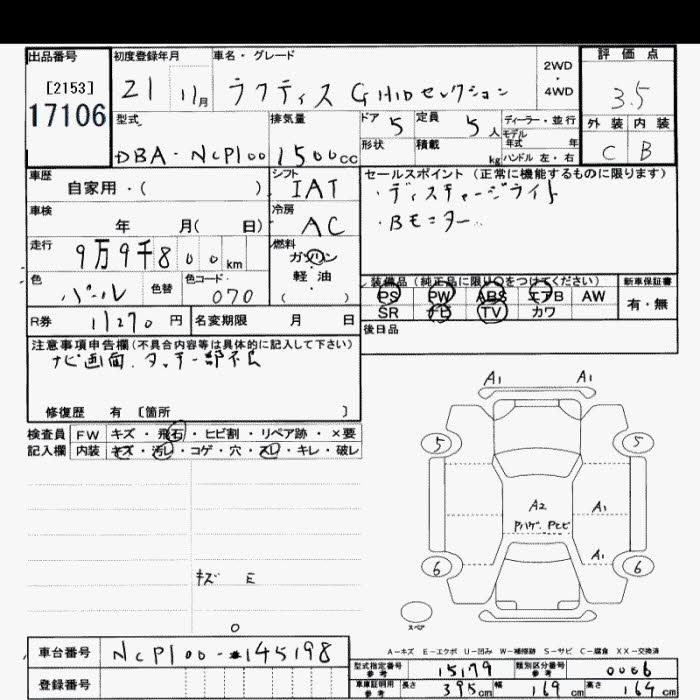 出品番号
[2153]
17106
初度登録年月
21 11月
車名・グレード
ラクティス G HIDセレクション
2WD
・
4WD
評価点
3.5
外装 内装
C B
型式
DBA-NCP100
排気量
1500cc
ドア 5
定員 5人
ディーラー・並行
モデル
年式 年
形状
積載 kg
ハンドル 左・右
車歴
自家用・( )
シフト
IAT
車検
年 月( 日)
冷房
AC
セールスポイント (正常に機能するものに限ります)
・ディスチャージライト
・Bモニター
走行
9万9千800km
燃料
ガソリン
・
軽油
( )
色
パール
色替
色コード
070
装備品(純正品に限り○をつけてください)
新車保証書
PS PW ABS エアB AW
有・無
SR ナビ TV カワ
R券 11270円
名変期限 月 日
後日品
注意事項申告欄(不具合内容等は具体的に記入して下さい)
ナビ画面.タッチ部不良
修復歴 有 〔箇所 〕
検査員 FW キズ・飛石・ヒビ割・リペア跡・×要
記入欄 内装 キズ・汚レ・コゲ・穴・スレ・キレ・破レ
キズ E
0
A1 A1
5 5
A2 A1
Pハゲ.Pヒビ
A1
6 6
スペア
A-キズ E-エクボ U-凹み W-補修跡 S-サビ C-腐食 XX-交換済
車台番号
NCP100-#145198
登録番号
型式指定番号
参考
15179
類別区分番号
参考
0006
車庫証明用
参考
長さ 395cm 幅 169cm 高さ 164cm